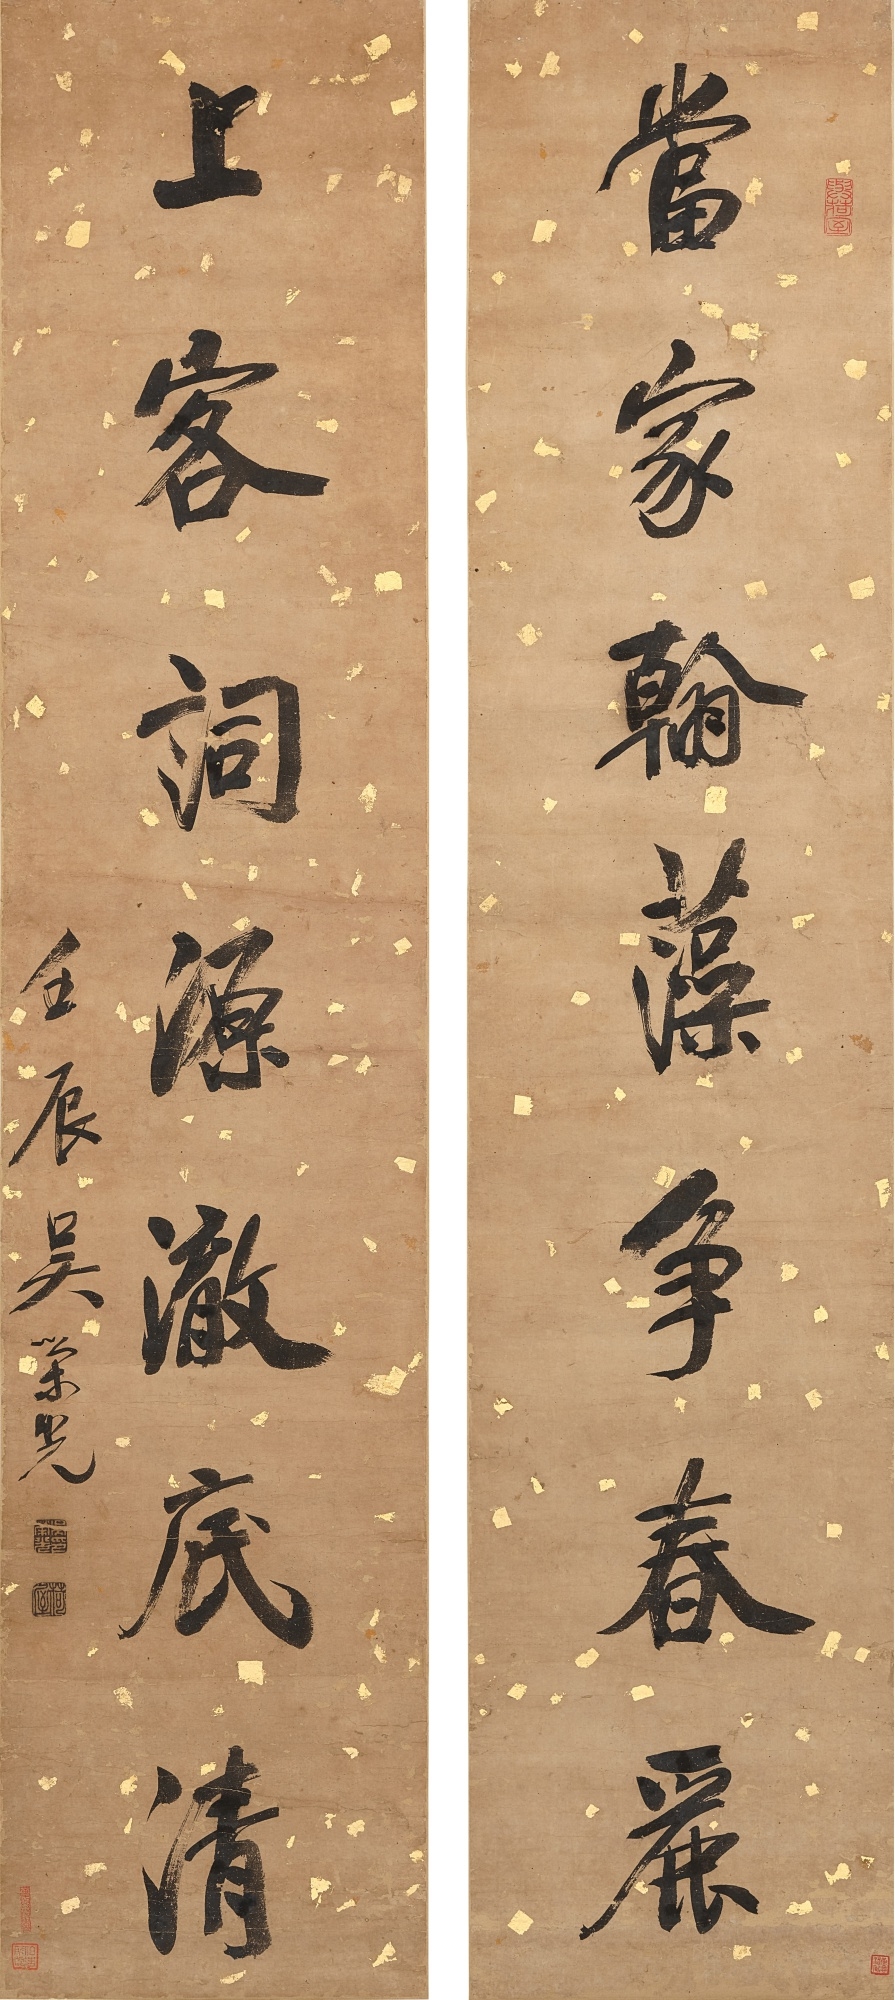 當家翰藻爭春麗
上客詞源澈底清
壬辰吳榮光